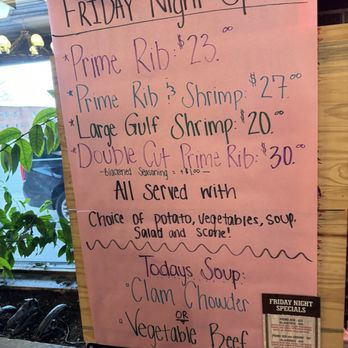 FRIDAY Night Sp
*Prime Rib: $23.00
*Prime Rib & Shrimp: $27.00
*Large Gulf Shrimp: $20.00
*Double Cut Prime Rib: $30.00
-Blackened Seasoning = +$1.00-
All served with
Choice of potato, vegetables, soup,
Salad and scone!
Todays Soup:
*Clam Chowder
OR
*Vegetable Beef
FRIDAY NIGHT
SPECIALS